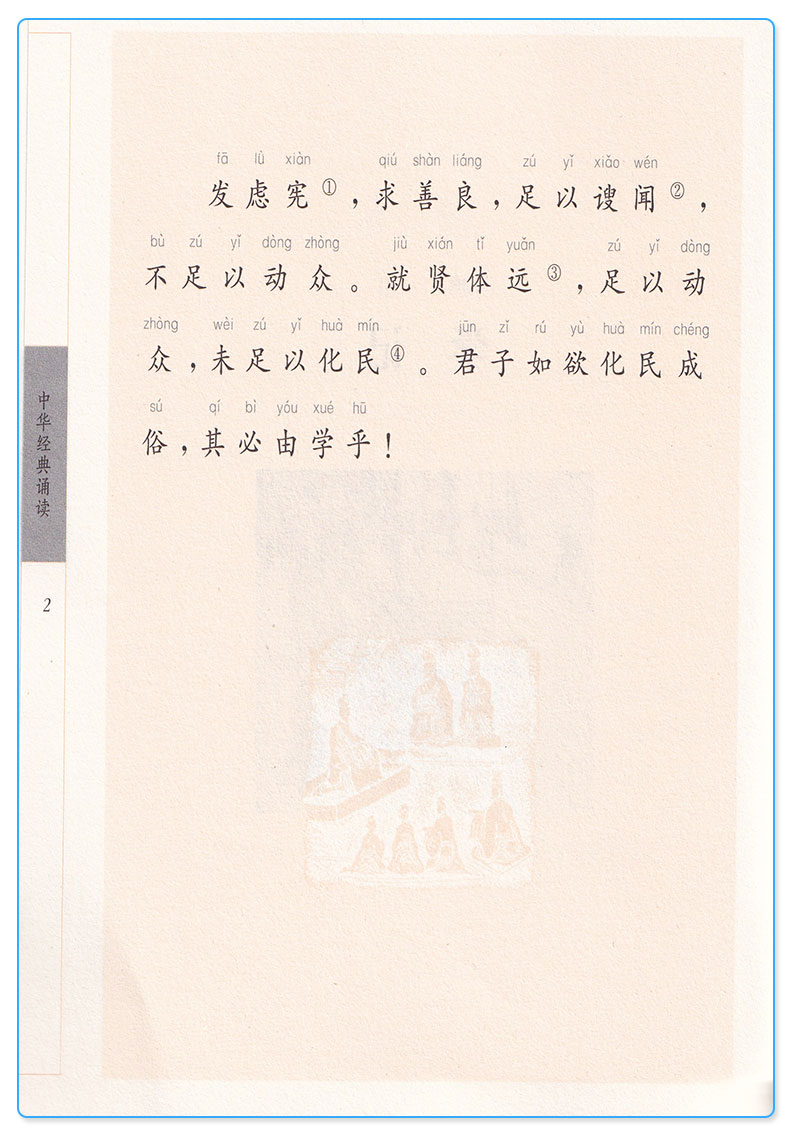 fā lǜ xiàn qiú shàn liáng zú yǐ xiǎo wén
发虑宪①，求善良，足以謏闻②，
bù zú yǐ dòng zhòng jiù xián tǐ yuǎn zú yǐ dòng
不足以动众。就贤体远③，足以动
zhòng wèi zú yǐ huà mín jūn zǐ rú yù huà mín chéng
众，未足以化民④。君子如欲化民成
sú qí bì yóu xué hū
俗，其必由学乎！
中华经典诵读
2